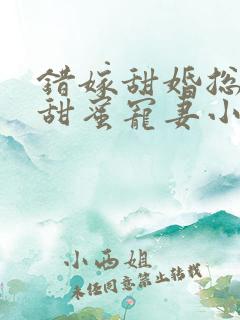 错嫁甜婚总
甜蜜宠妻小
小西姐
未经同意禁止转载